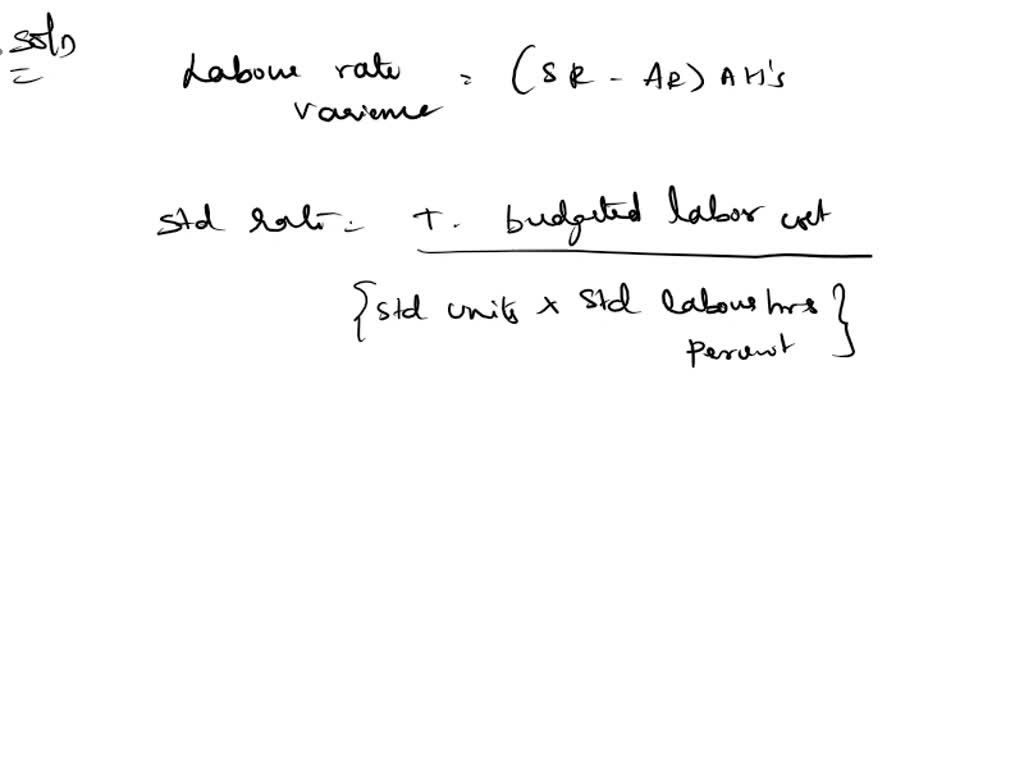 soln
Labour rate = (SR - AR) AH's
varience
std rate = T. budgeted labor cost
{std units × std labour hrs}
perunit